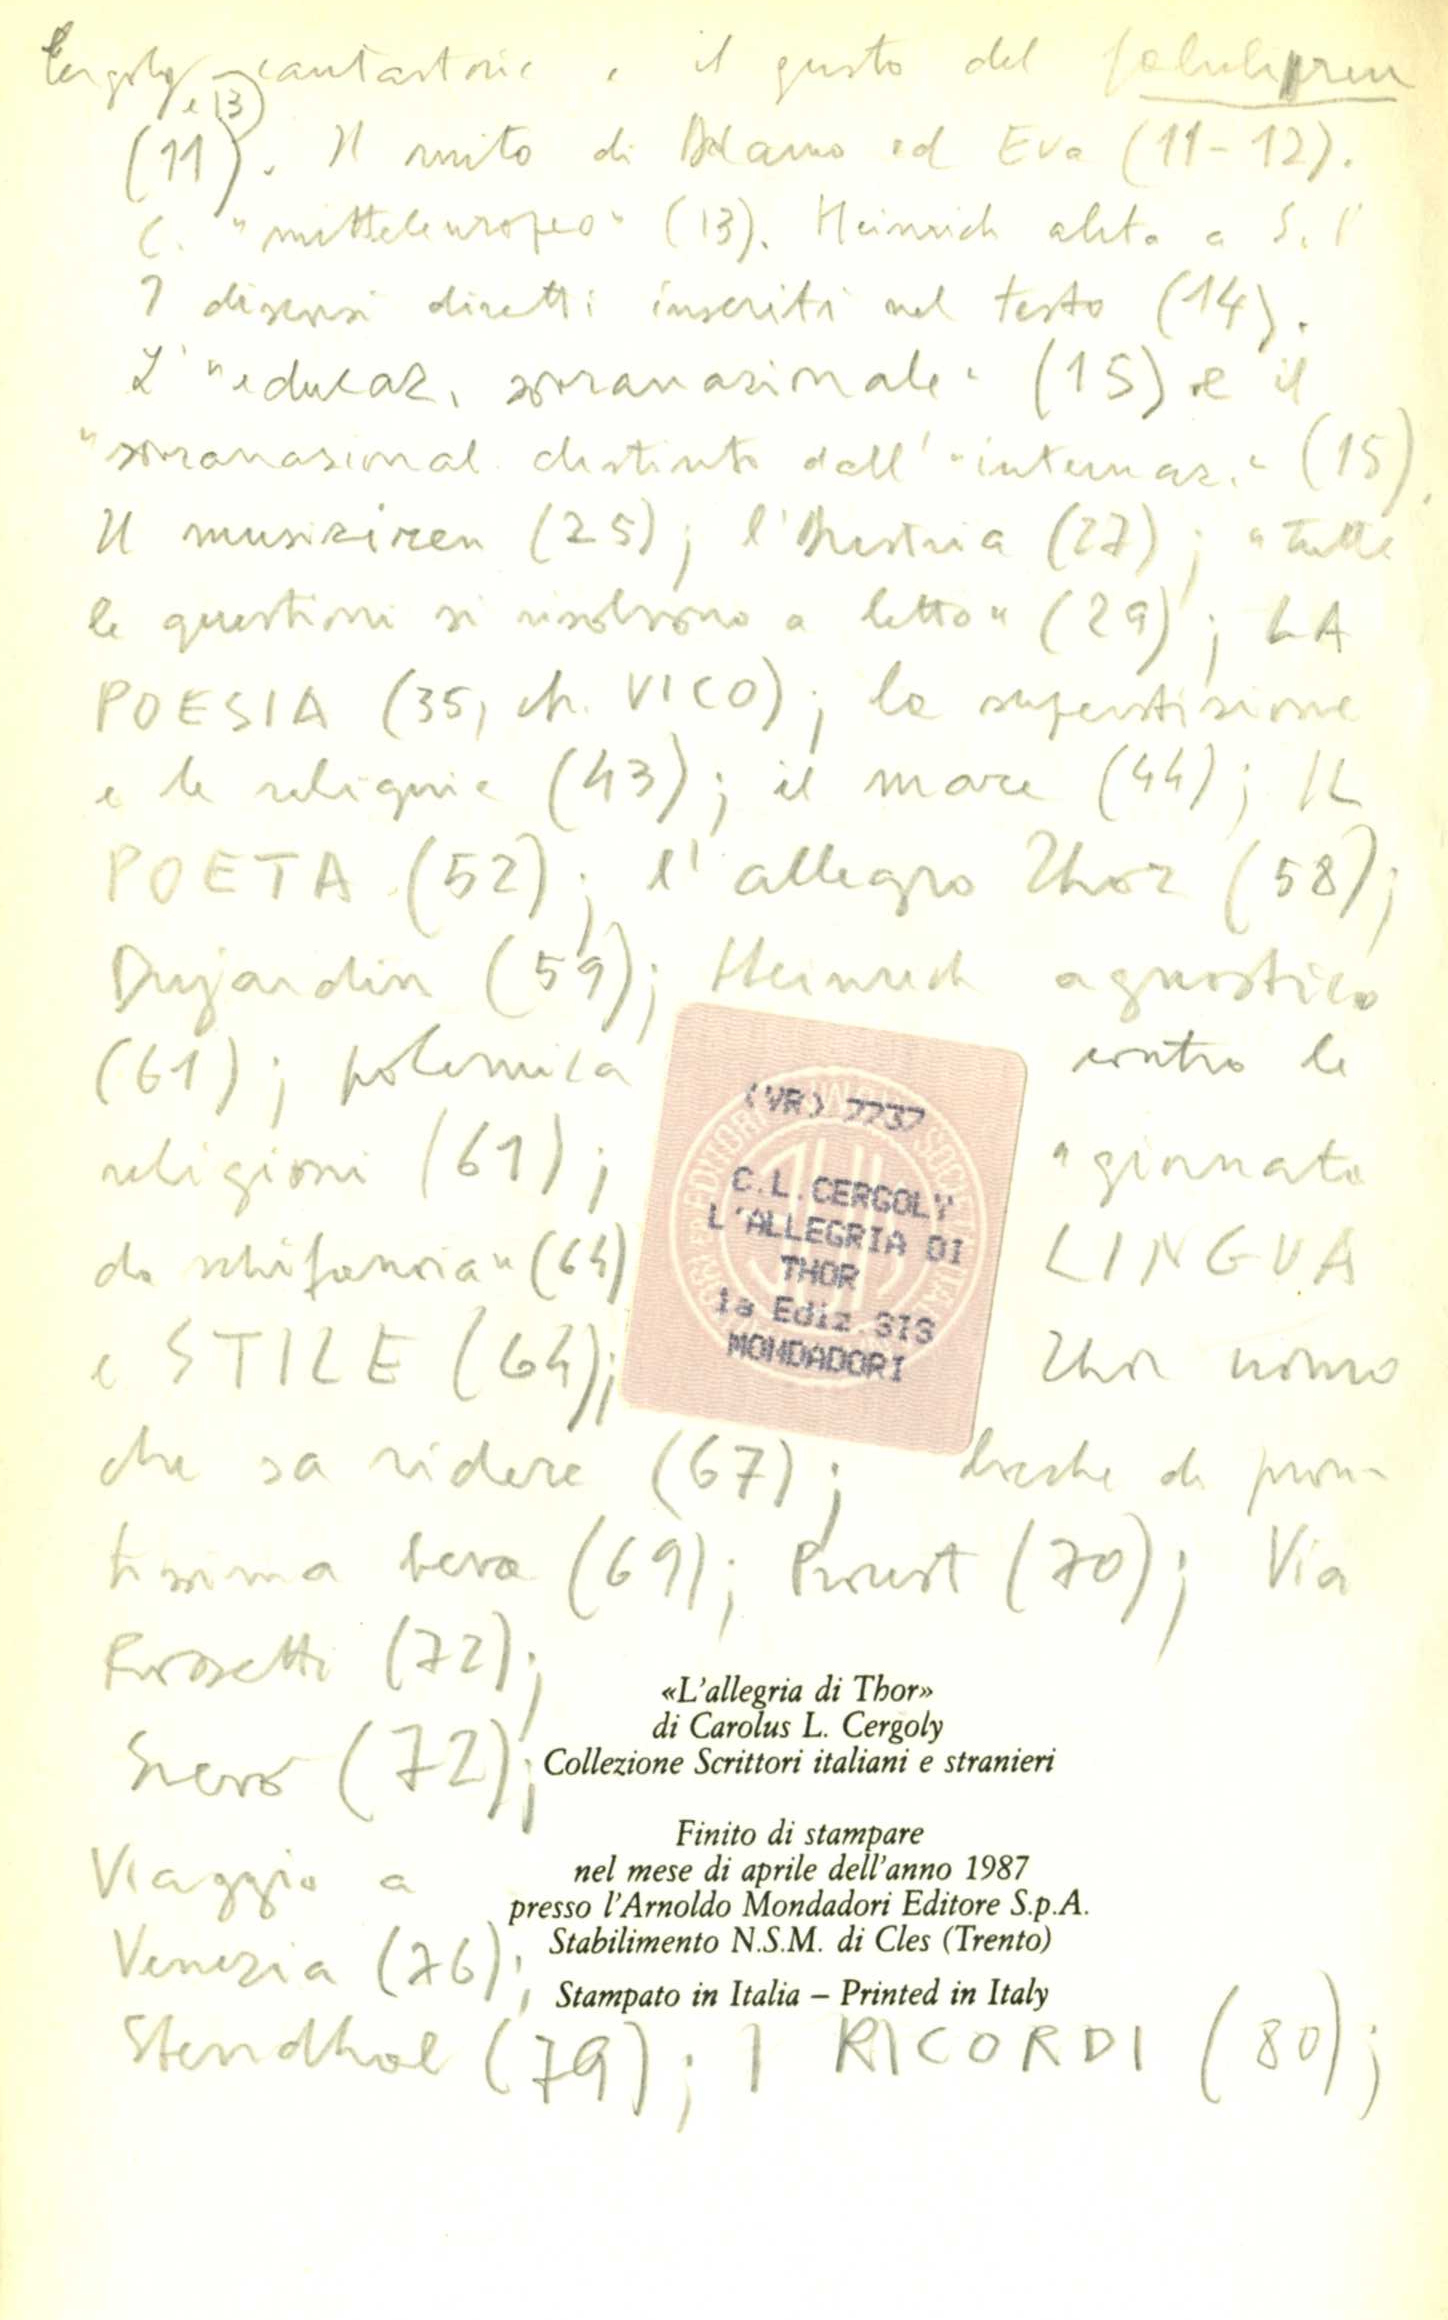 Cergoly cantastorie e il gusto del fabulieren
(11 e 13). Il mito di Adamo ed Eva (11-12).
C. "mitteleuropeo" (13). Heinrich abita a
I discorsi diretti inseriti nel testo (14).
L'"educaz. sovranazionale" (15) e il
"sovranazional. distinto dall'"internaz." (15).
Il musiziren (25); l'Austria (27); "tutte
le questioni si risolvono a letto" (29); LA
POESIA (35, cfr. VICO); la superstizione
e le reliquie (43); il mare (44); IL
POETA (52); l'allegro Thor (58);
Dujardin (59); Heinrich agnostico
(61); polemica contro le
religioni (61); "giornata
da schifanoia" (64) LINGUA
e STILE (64); Thor uomo
che sa ridere (67); di pron-
tissima beva (69); Proust (70); Via
Rossetti (72);
Svevo (72);
Viaggio a
Venezia (76);
Stendhal (79); I RICORDI (80);
(VR) 7737
C.L.CERGOLY
L'ALLEGRIA DI
THOR
1a Ediz.SIS
MONDADORI
«L'allegria di Thor»
di Carolus L. Cergoly
Collezione Scrittori italiani e stranieri
Finito di stampare
nel mese di aprile dell'anno 1987
presso l'Arnoldo Mondadori Editore S.p.A.
Stabilimento N.S.M. di Cles (Trento)
Stampato in Italia – Printed in Italy